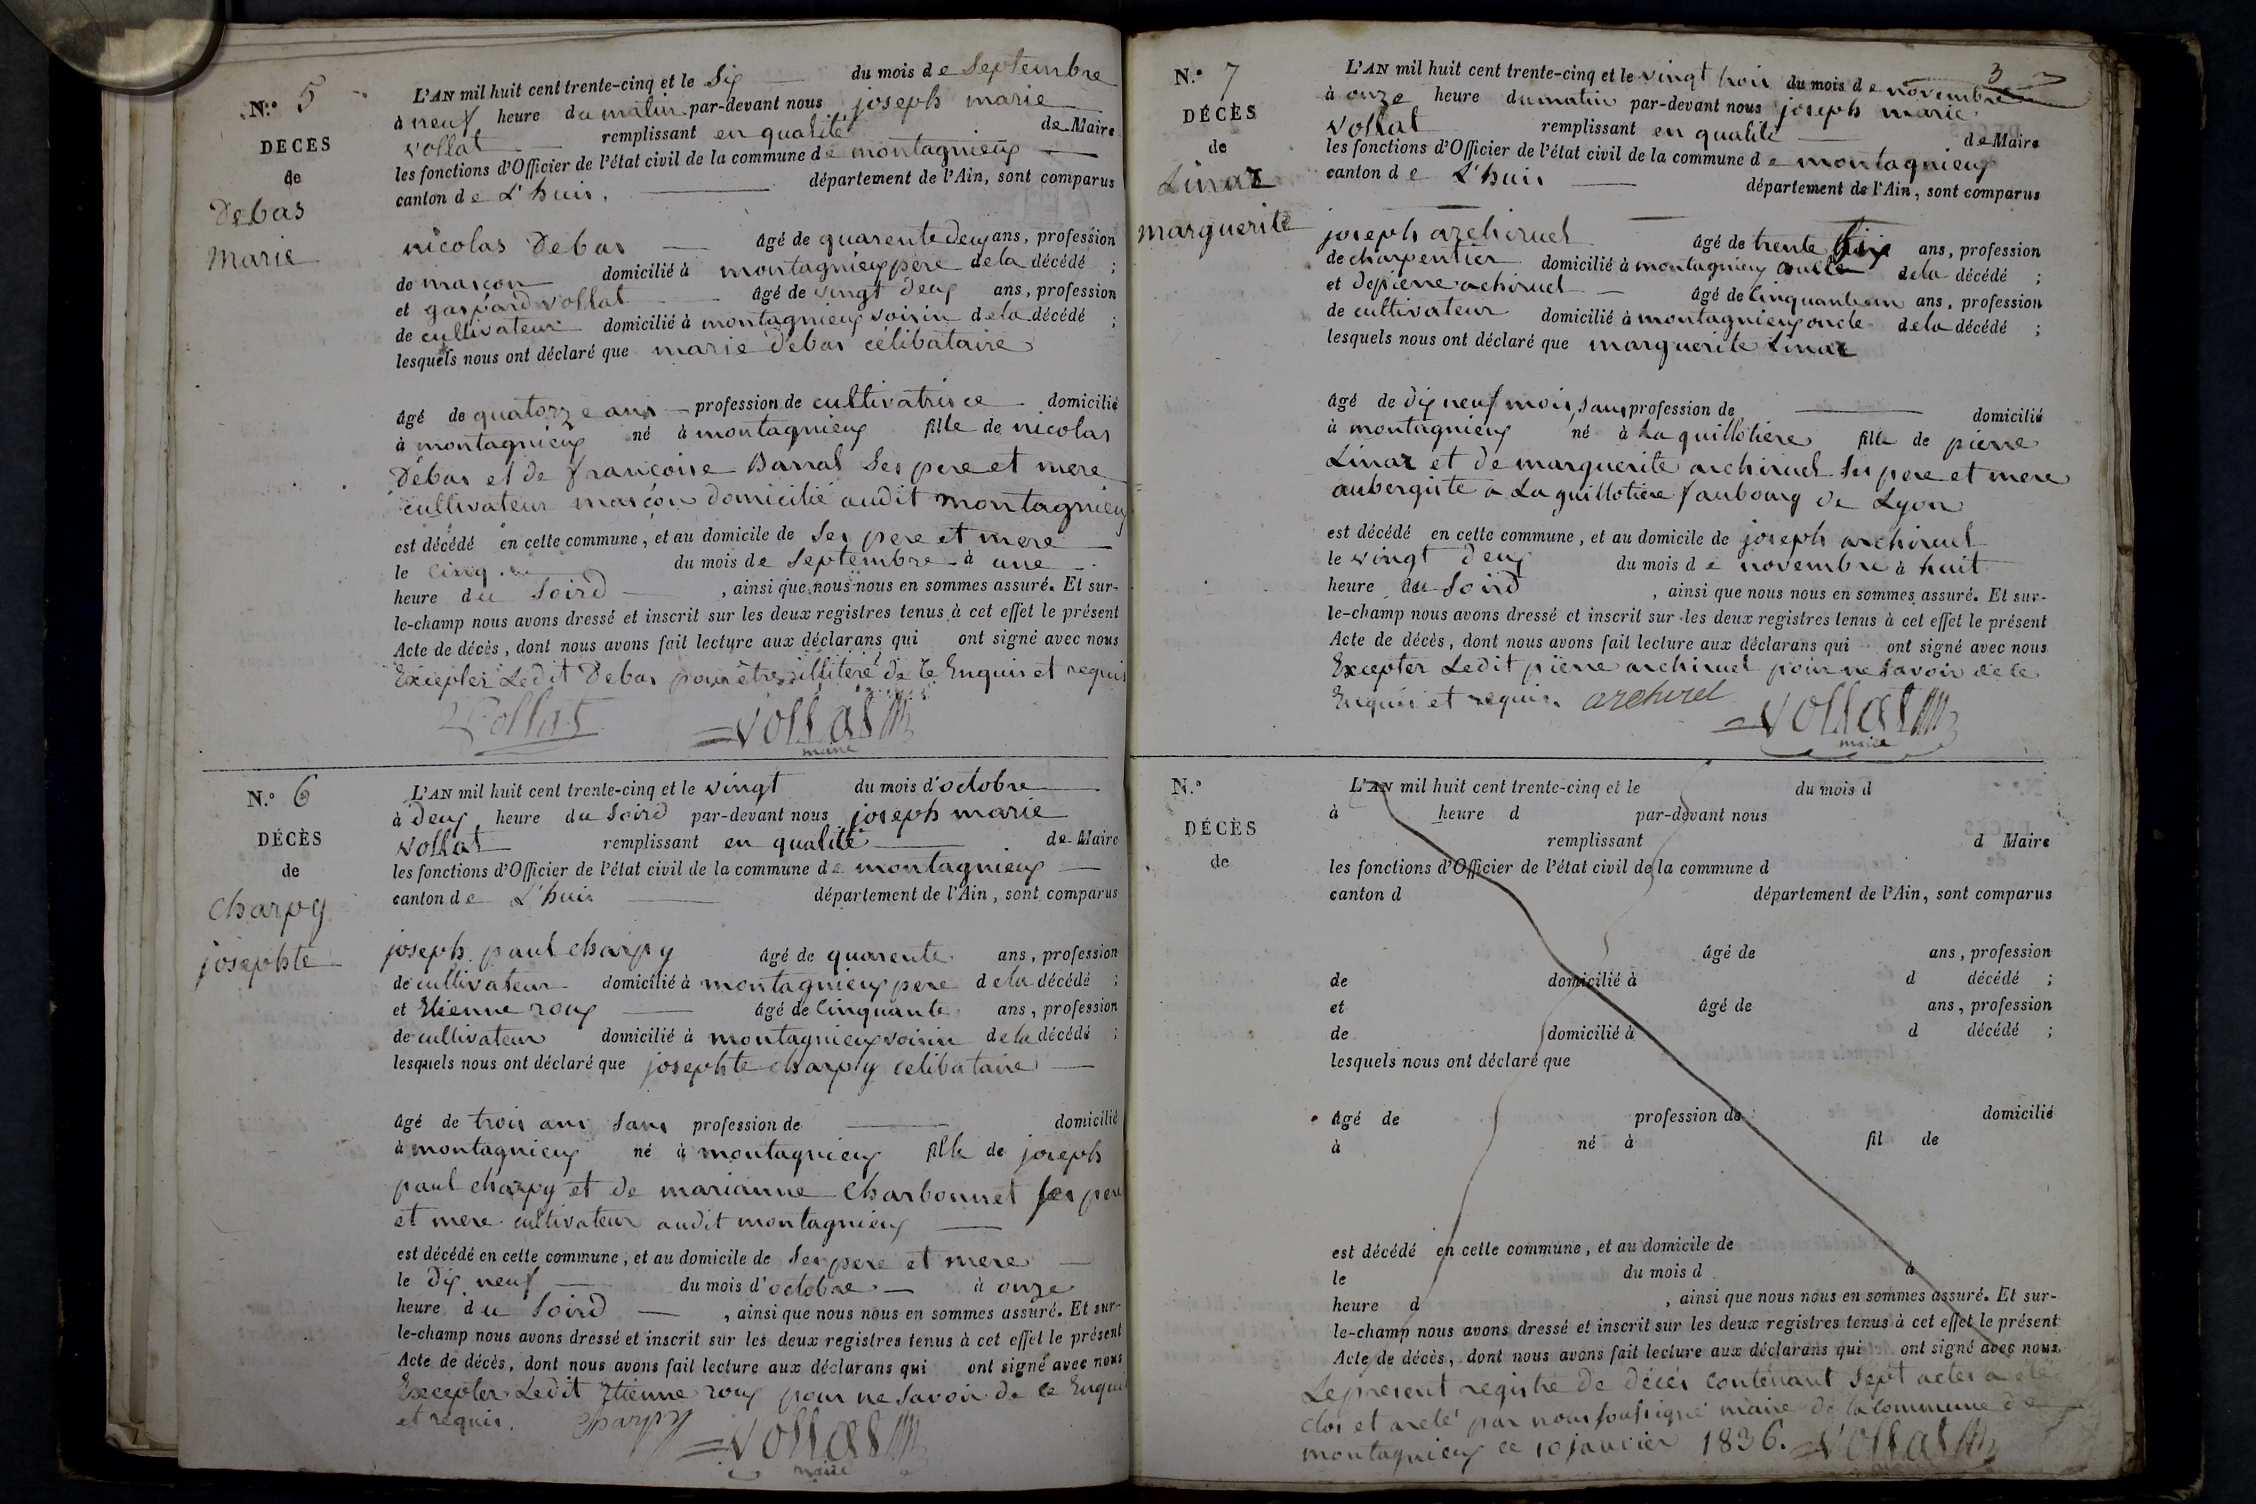 N.° 5
DÉCÈS
de
Debas
marie
L'AN mil huit cent trente-cinq et le Six du mois de Septembre
à neuf heure du matin par-devant nous joseph marie
vollat remplissant en qualité de Maire
les fonctions d'Officier de l'état civil de la commune de montagnieux
canton de L'huis. département de l'Ain, sont comparus
nicolas Debas âgé de quarente deux ans, profession
de masçon domicilié à montagnieux père de la décédé ;
et gaspard vollat âgé de vingt deux ans, profession
de cultivateur domicilié à montagnieux voisin de la décédé ;
lesquels nous ont déclaré que marie Debas célibataire
âgé de quatorze ans profession de cultivatrisce domicilié
à montagnieux né à montagnieux fille de nicolas
Débas et de françoise Barral Ses pere et mere
cultivateur masçon domicilié audit montagnieux
est décédé en cette commune, et au domicile de Ses pere et mere
le cinq du mois de Septembre à une
heure du Soird , ainsi que nous nous en sommes assuré. Et sur-
le-champ nous avons dressé et inscrit sur les deux registres tenus à cet effet le présent
Acte de décès, dont nous avons fait lecture aux déclarans qui ont signé avec nous
Excepter Ledit Debas pour être illiteré de ce Enquis et requis
Vollat vollat
maire
N.° 6
DÉCÈS
de
charpy
josephte
L'AN mil huit cent trente-cinq et le vingt du mois d'octobre
à Deux heure du Soird par-devant nous joseph marie
vollat remplissant en qualité de Maire
les fonctions d'Officier de l'état civil de la commune de montagnieux
canton de L'huis département de l'Ain, sont comparus
joseph paul charpy âgé de quarente ans, profession
de cultivateur domicilié à montagnieux pere de la décédé ;
et Etienne roux âgé de Cinquante ans, profession
de cultivateur domicilié à montagnieux voisin de la décédé ;
lesquels nous ont déclaré que josephte charpy celibataire
âgé de trois ans Sans profession de domicilié
à montagnieux né à montagnieux fille de joseph
paul charpy et de marianne Charbonnet ses pere
et mere cultivateur audit montagnieux
est décédé en cette commune, et au domicile de Ses pere et mere
le Dix neuf du mois d'octobre à onze
heure du Soird , ainsi que nous nous en sommes assuré. Et sur-
le-champ nous avons dressé et inscrit sur les deux registres tenus à cet effet le présent
Acte de décès, dont nous avons fait lecture aux déclarans qui ont signé avec nous
Excepter Ledit Etienne roux pour ne Savoir de ce Enquis
et requis. charpy vollat
maire
3
N.° 7
DÉCÈS
de
Linaz
marguerite
L'AN mil huit cent trente-cinq et le vingt trois du mois de novembre
à onze heure du matin par-devant nous joseph marie
vollat remplissant en qualité de Maire
les fonctions d'Officier de l'état civil de la commune de montagnieux
canton de L'huis département de l'Ain, sont comparus
joseph archiruel âgé de trente ans, profession
de charpentier domicilié à montagnieux de la décédé ;
et de pierre achiruel âgé de Cinquante un ans, profession
de cultivateur domicilié à montagnieux oncle de la décédé ;
lesquels nous ont déclaré que marguerite Linaz
âgé de dix neuf mois, Sans profession de domicilié
à montagnieux né à La quillotiere fille de pierre
Linaz et de marguerite archiruel Ses pere et mere
aubergiste à La guillotiere faubourg de Lyon
est décédé en cette commune, et au domicile de joseph archiruel
le vingt deux du mois de novembre à huit
heure du Soird , ainsi que nous nous en sommes assuré. Et sur-
le-champ nous avons dressé et inscrit sur les deux registres tenus à cet effet le présent
Acte de décès, dont nous avons fait lecture aux déclarans qui ont signé avec nous
Excepter Ledit pierre archiruel pour ne Savoir de ce
Enquis et requis. archirel vollat
maire
N.°
DÉCÈS
de
L'AN mil huit cent trente-cinq et le du mois d
à heure d par-devant nous
remplissant d Maire
les fonctions d'Officier de l'état civil de la commune d
canton d département de l'Ain, sont comparus
âgé de ans, profession
de domicilié à d décédé ;
et âgé de ans, profession
de domicilié à d décédé ;
lesquels nous ont déclaré que
âgé de profession de domicilié
à né à fil de
est décédé en cette commune, et au domicile de
le du mois d à
heure d , ainsi que nous nous en sommes assuré. Et sur-
le-champ nous avons dressé et inscrit sur les deux registres tenus à cet effet le présent
Acte de décès, dont nous avons fait lecture aux déclarans qui ont signé avec nous.
Le present registre de décès contenant Sept actes a été
clos et areté par nous soussigné maire de la commune de
montagnieux ce 10 janvier 1836. vollat